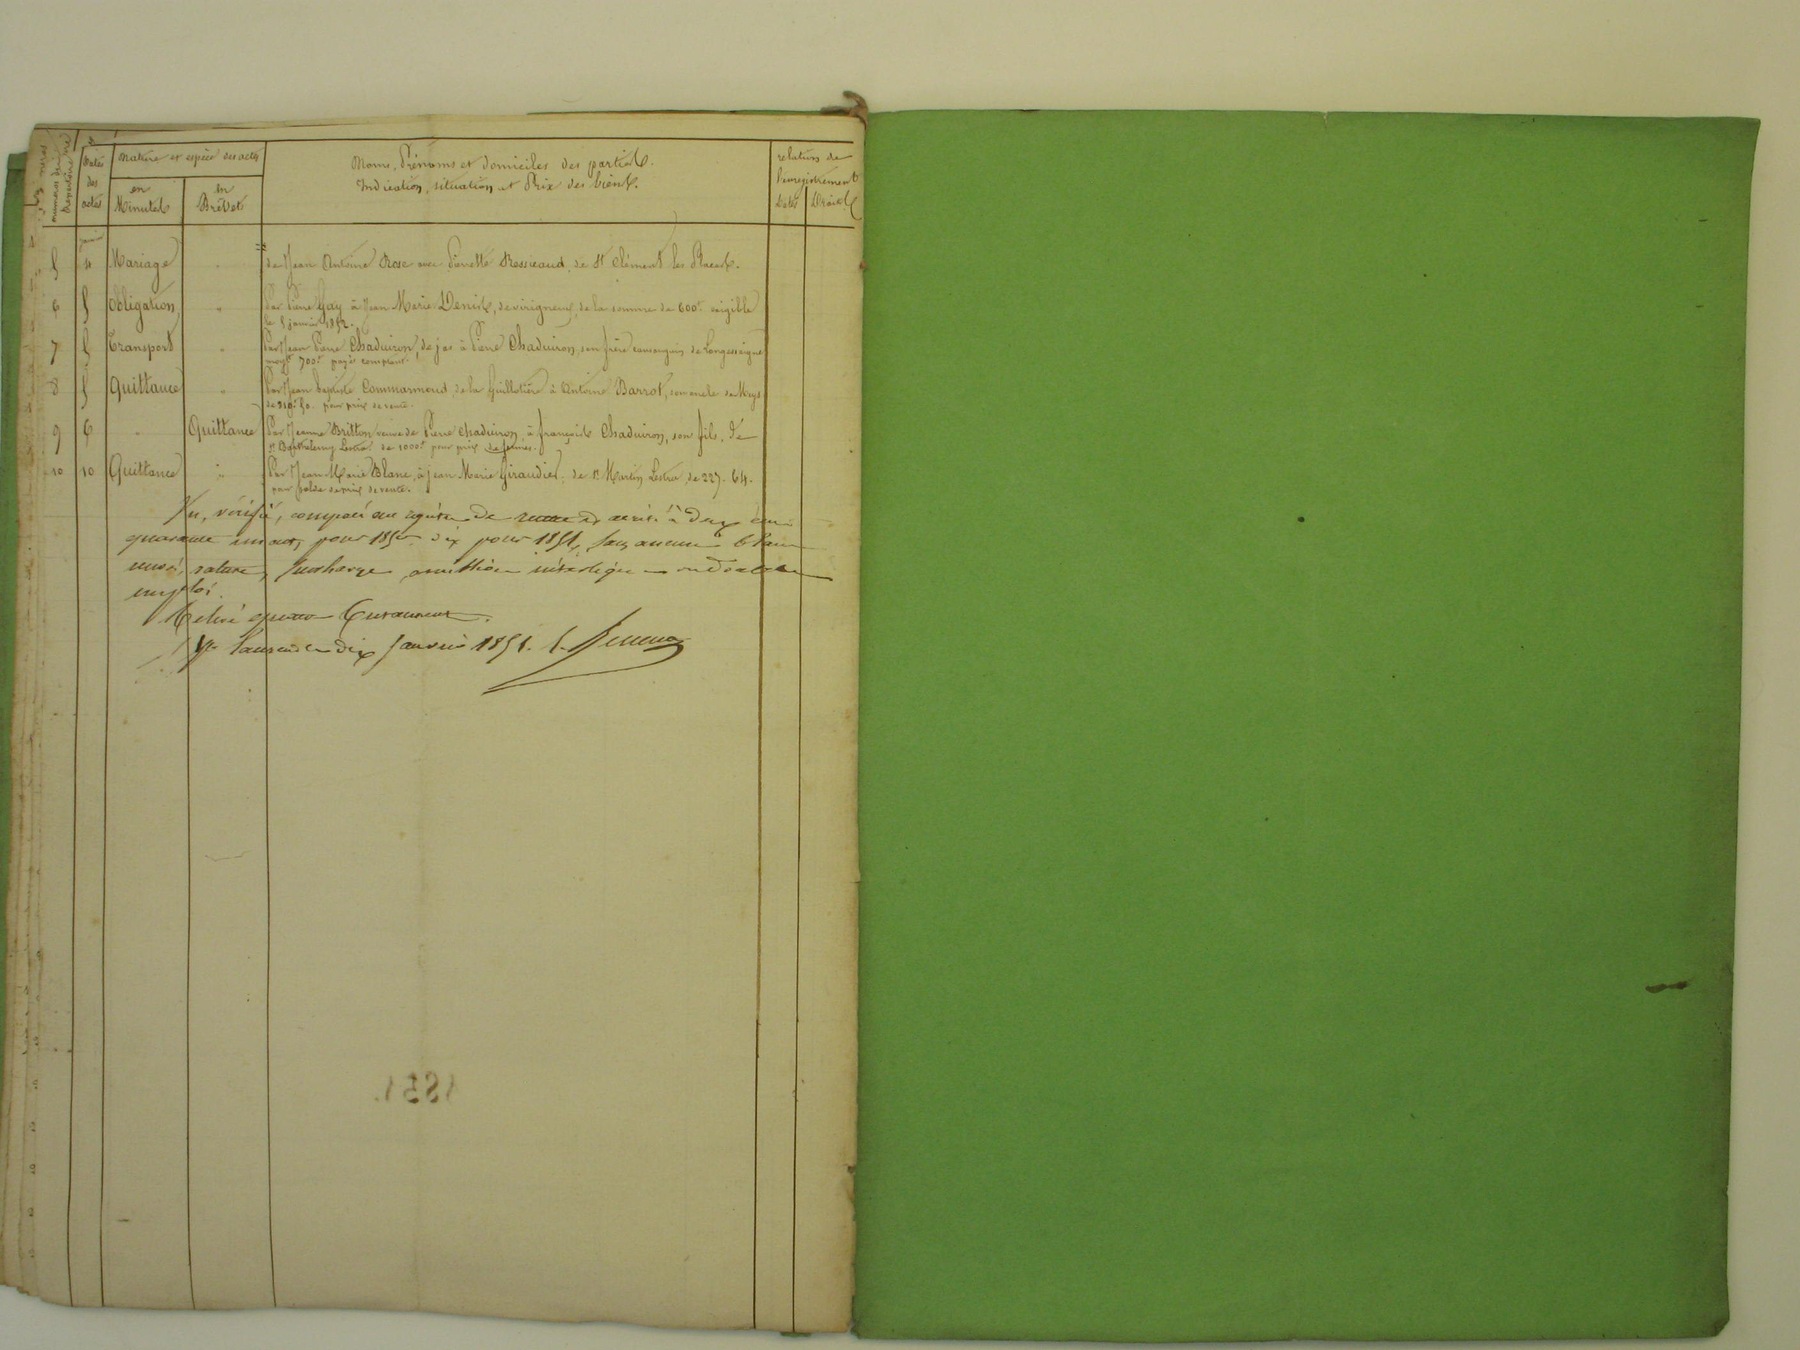 numéros du répertoire
Dates des actes
Nature et espèce des actes
en Minutes
en Brevets
Noms, Prénoms et domiciles des parties.
Indication, situation et Prix des biens.
relation de l'enregistrement
Dates
Droits
Janvier
5 4 Mariage " de Jean Antoine Rose avec Pierrette Ressicaud, de St Clément les Places.
6 5 Obligation, " Par Pierre Gay à Jean Marie Denis, de virigneux, de la somme de 600f exigible
le 5 janvier 1852.
7 5 Transport " Par Jean Pierre Chaduiron, de jas à Pierre Chaduiron, son frère consanguin de Longessaigne
moyt 700f payés comptant.
8 5 Quittance " Par Jean Baptiste Commarmond, de la Guillotière à Antoine Barrot, son oncle de Meys
de 210f 50. pour prix de vente.
9 6 " Quittance Par Jeanne Britton veuve de Pierre Chaduiron, à françois Chaduiron, son fils, de
St Barthélemy Lestra de 1000f pour prix de fermes.
10 10 Quittance " Par Jean Marie Blanc, à jean Marie Giraudier, de St Martin Lestra, de 227. 64.
pour solde de prix de vente.
Vu, vérifié, comparé aux registres de deux cent
quarante un actes pour 1850 dix pour 1851, sans aucun blanc
rature, surcharge omission intervertion ou double
emploi.
St Laurent le dix janvier 1851.
1851.